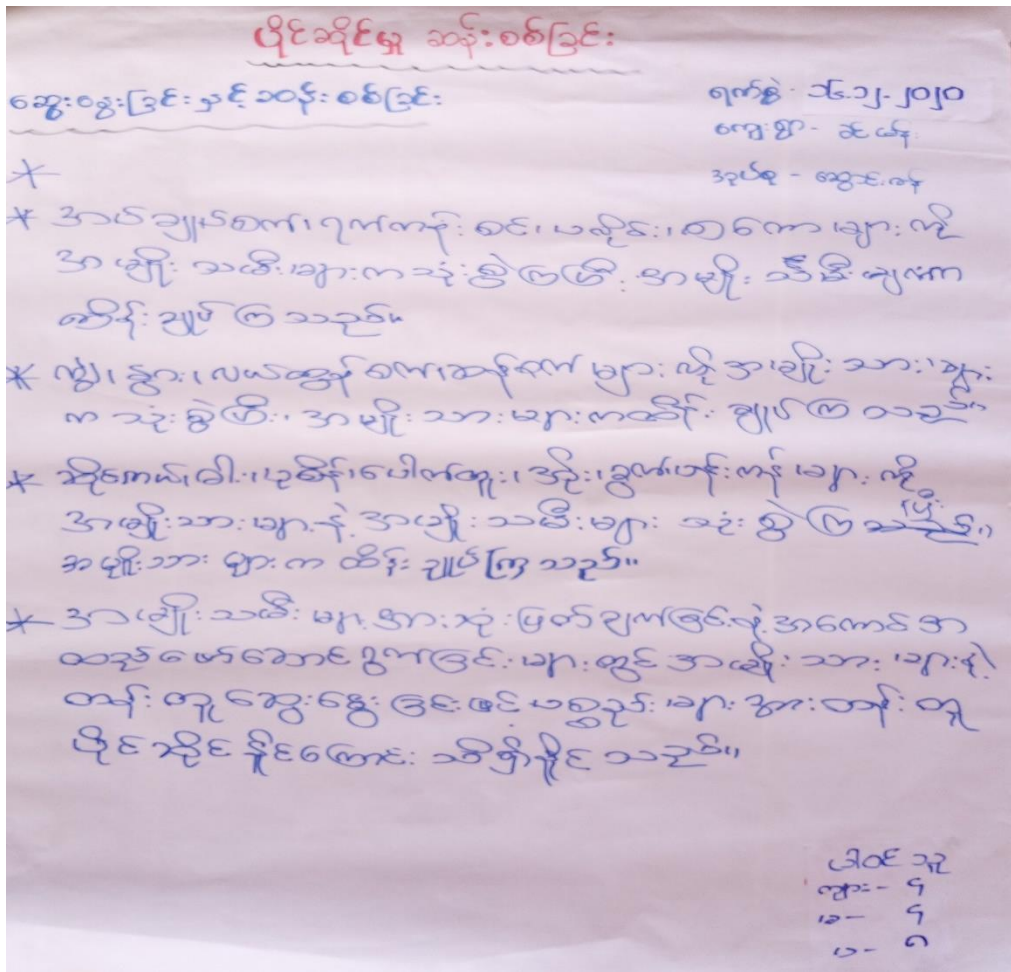 ပိုင်ဆိုင်မှု ဆန်းစစ်ခြင်း
ဆွေးနွေးခြင်းနှင့်ဆန်းစစ်ခြင်း
ရက်စွဲ - ၁၆.၁၂.၂၀၂၀
ကျေးရွာ -
အုပ်စု -
*
* အပ်ချုပ်စက်၊ ရက်ကန်းစင်၊ ပလိုင်း၊ များကို
အမျိုးသမီးများကသုံးစွဲကြပြီး အမျိုးသမီးများက
ထိန်းချုပ်ကြသည်။
* ကျွဲ၊ နွား၊ လယ်ထွန်စက်၊ ဆန်စက်များကို အမျိုးသားများ
ကသုံးစွဲပြီး၊ အမျိုးသားများကထိန်းချုပ်ကြသည်။
* ဆိုင်ကယ်၊ ဓါး၊ ပုဆိန်၊ ပေါက်တူး၊ အိုး၊ ခွက်ပန်းကန်များကို
အမျိုးသားများနဲ့ အမျိုးသမီးများ သုံးစွဲကြပြီး
အမျိုးသားများက ထိန်းချုပ်ကြသည်။
* အမျိုးသမီးများအားဆုံးဖြတ်ချက်ခြင်းနဲ့ အကောင်အ
ထည်ဖော်ဆောင်ရွက်ခြင်းများတွင် အမျိုးသားများနဲ့
တန်းတူဆွေးနွေးခြင်းဖြင့် ပစ္စည်းများအားတန်းတူ
ပိုင်ဆိုင်နိုင်ကြောင်း သိရှိနိုင်သည်။
ပါဝင်သူ
ကျား - ၄
မ - ၄
ပ - ၈